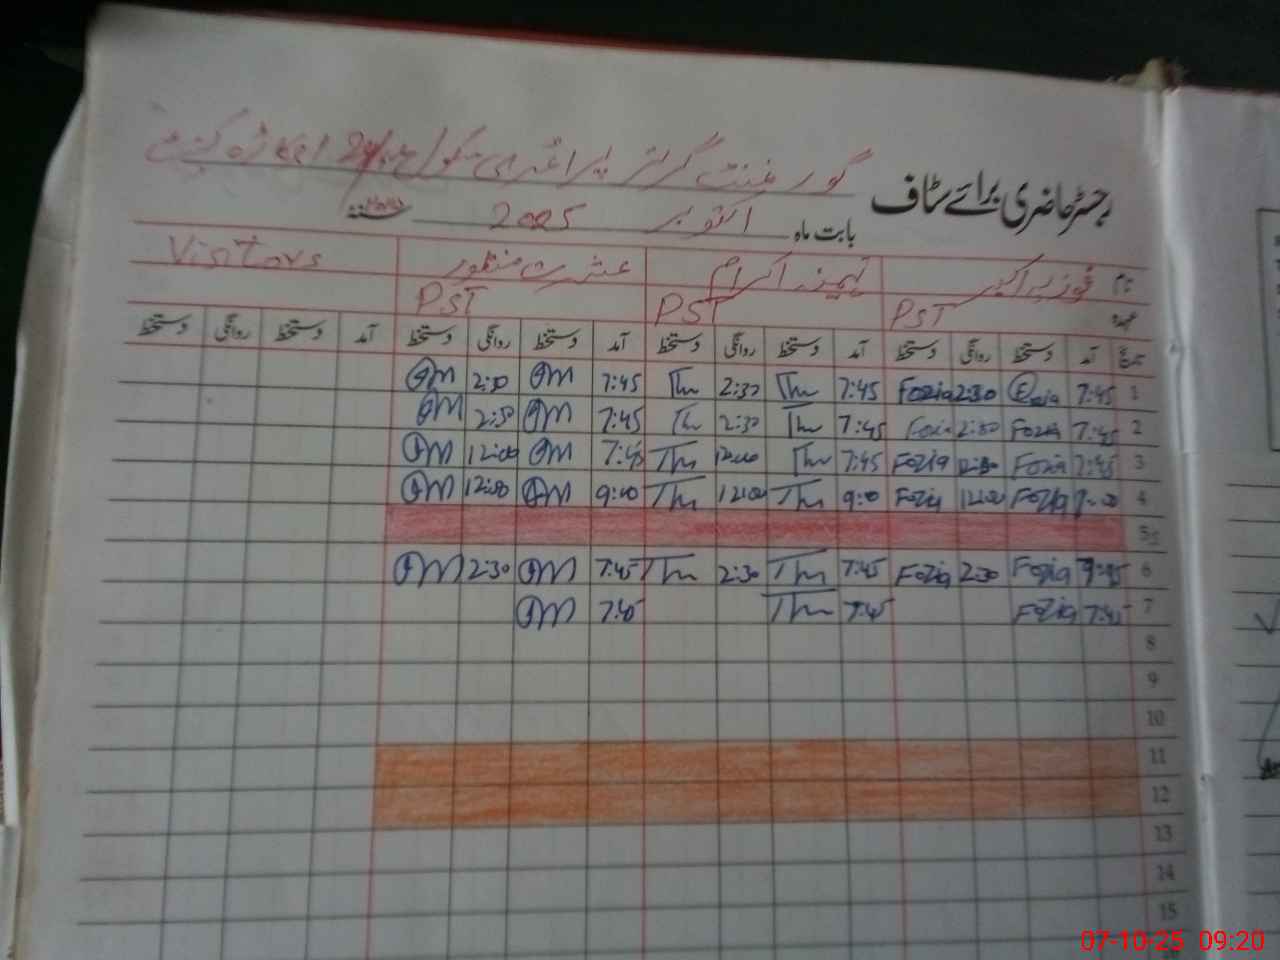 رجسٹر حاضری برائے سٹاف گورنمنٹ گرلز پرائمری سکول
بابت ماہ اکتوبر 2025
نام فوزیہ اکبر تہمینہ اکرام عشرت منظور Visitors
عہدہ PST PST PST
تاریخ آمد دستخط روانگی دستخط آمد دستخط روانگی دستخط آمد دستخط روانگی دستخط آمد دستخط روانگی دستخط
1 7:45 Fozia 2:30 Fozia 7:45 Thr 2:30 Thr 7:45 IM 2:30 IM
2 7:45 Fozia 2:30 Fozia 7:45 Thr 2:30 Thr 7:45 IM 2:30 IM
3 7:45 Fozia Fozia 7:45 Thr 12:00 Thr 7:45 IM 12:00 IM
4 Fozia 12:00 Fozia 9:00 Thr 12:00 Thr 9:00 IM 12:00 IM
5
6 Fozia 2:30 Fozia 7:45 Thr 2:30 Thr 7:45 IM 2:30 IM
7 7:45 Fozia 7:45 Thr 7:45 IM
8
9
10
11
12
13
14
15
07-10-25 09:20